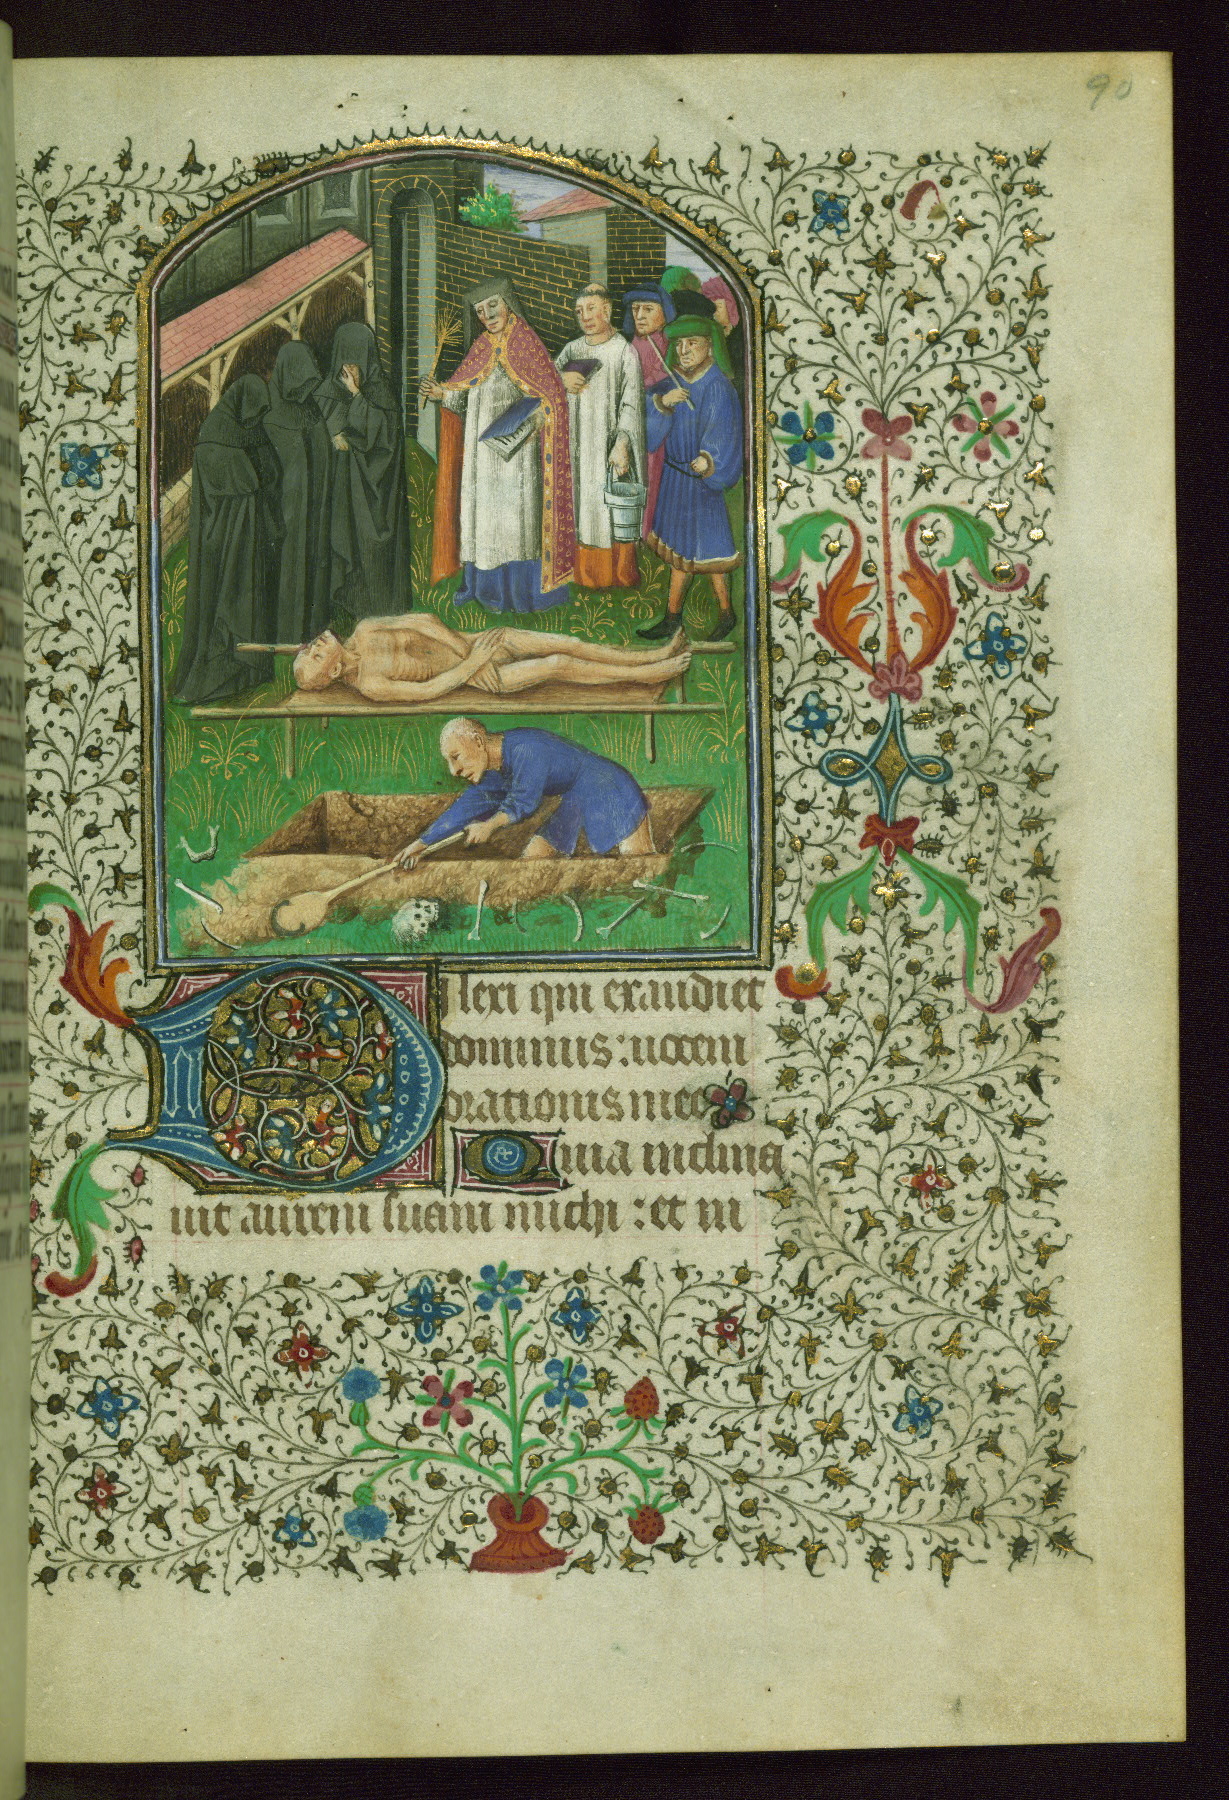 90
Dilexi qui exaudiet
dominus : uocem
orationis mee
Quia inclina
uit aurem suam michi : et in